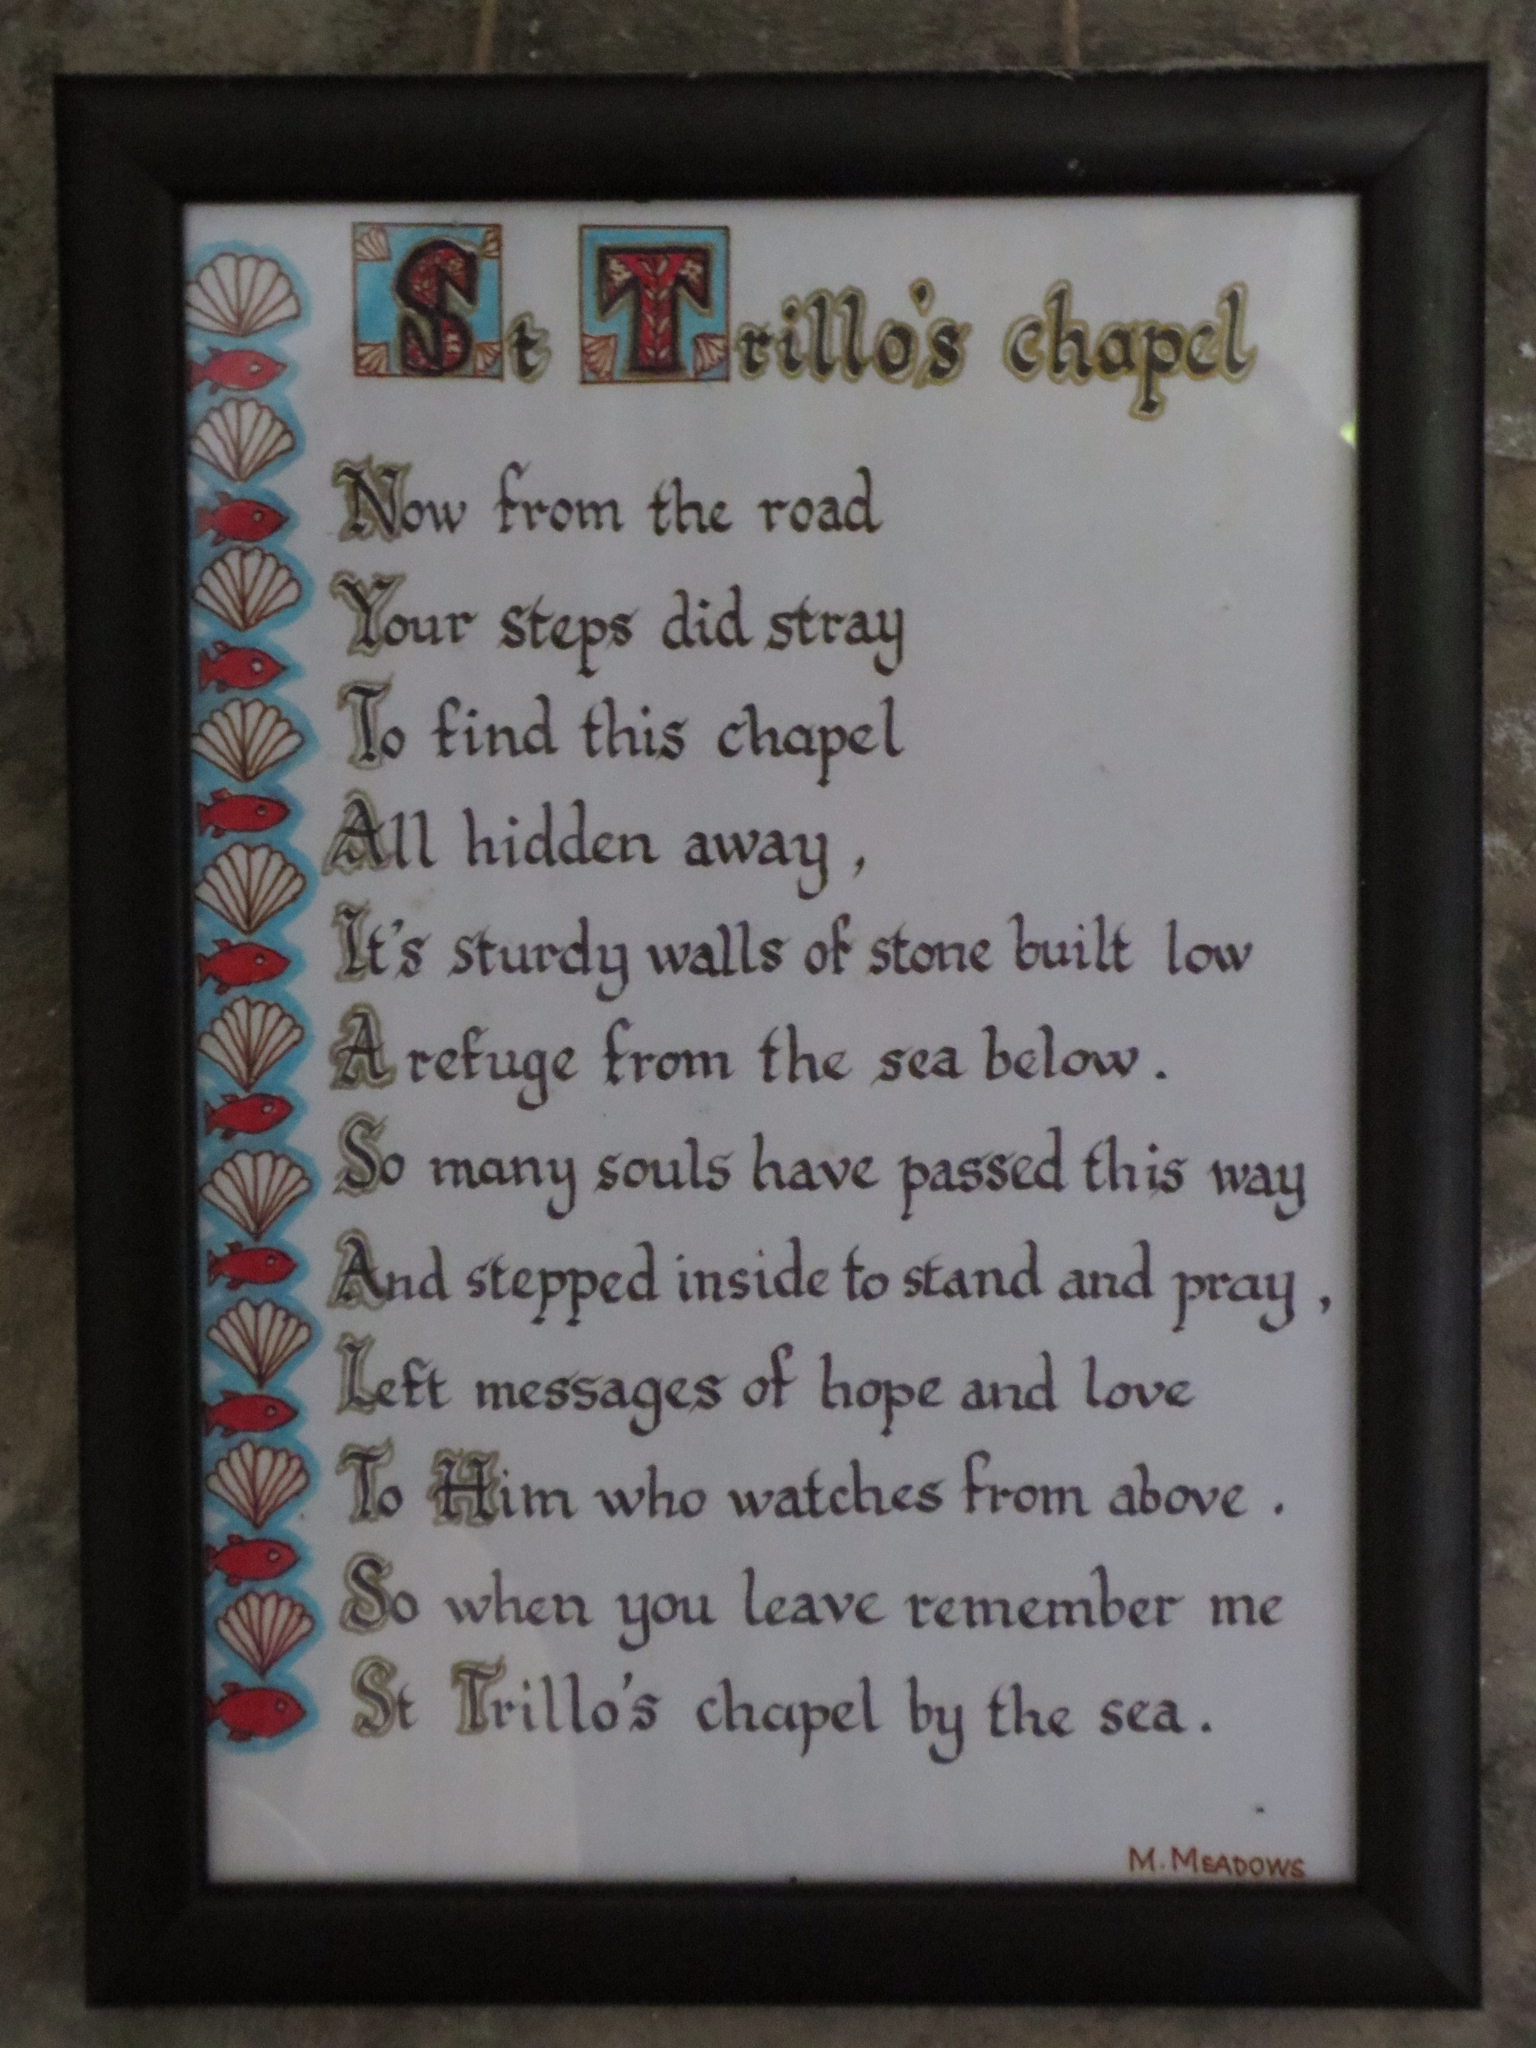 St Trillo's chapel
Now from the road
Your steps did stray
To find this chapel
All hidden away,
It's sturdy walls of stone built low
A refuge from the sea below.
So many souls have passed this way
And stepped inside to stand and pray,
Left messages of hope and love
To Him who watches from above.
So when you leave remember me
St Trillo's chapel by the sea.
M. MEADOWS